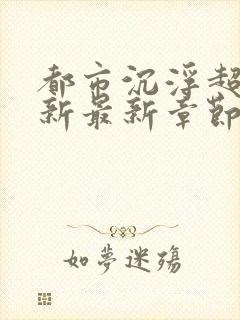 都市沉浮超
新最新章節
如夢迷殤